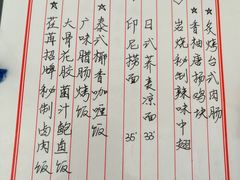 ★炙烤台式肉肠
★香柚唐扬鸡块
★岩烧秘制辣味中翅
日式荞麦凉面 33
印尼捞面 35
泰式椰香咖喱饭
广味腊肠烤饭
大骨花胶菌汁鲍鱼饭
茬茸招牌秘制卤肉饭